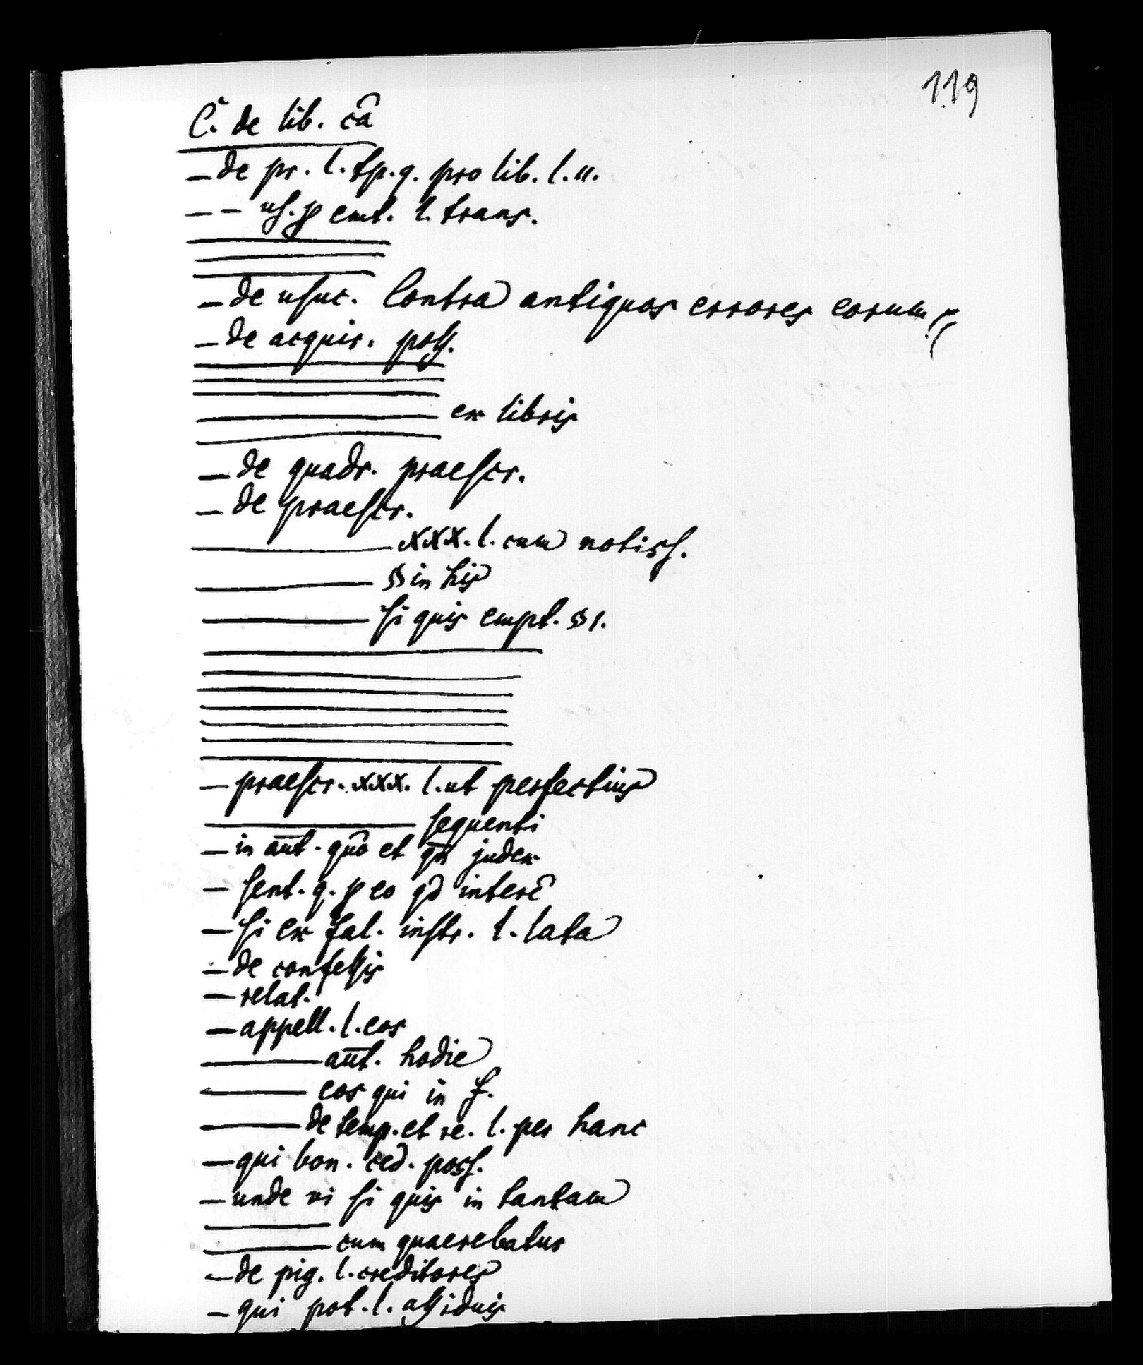 119
C. de lib. cā
– de pr. l. sp. q. pro lib. l. u.
– – uſ. p emt. l. trans.
– de uſuc. Contra antiquos errores eorum
– de acquir. poſſ.
ex libris
– de quadr. praeſcr.
– de praeſcr.
xxx. l. cum notiſſ.
§ in his
ſi quis empt. § 1.
– praeſcr. xxx. l. ut perfectius
ſequenti
– in aūt. quō et qn̄ judex
– ſent. q. p eo qd interē
– ſi ex fal. inſtr. l. lata
– de confeſſis
– relat.
– appell. l. eos
aūt. hodie
eos qui in f.
de temp. et re. l. per hanc
– qui bon. ced. poſſ.
– unde vi ſi quis in tantam
cum quaerebatur
– de pig. l. creditores
– qui pot. l. aſſiduis